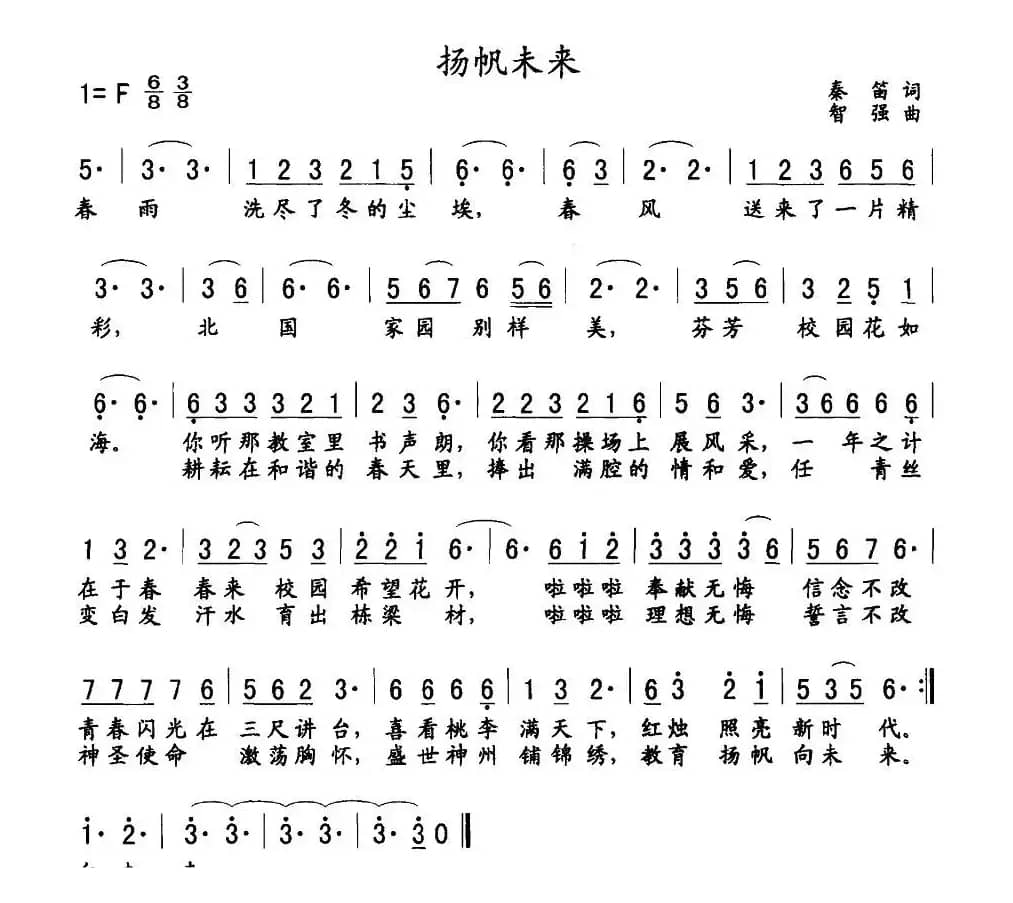 扬帆未来
1=F 6/8 3/8
秦 笛 词
智 强 曲
5· | 3· 3· | 1 2 3 2 1 5̣ | 6̣· 6̣· | 6̣ 3 | 2· 2· | 1 2 3 6 5 6 |
春 雨 洗尽了冬的尘 埃, 春 风 送来了一片精
3· 3· | 3 6 | 6· 6· | 5 6 7 6 5 6 | 2· 2· | 3 5 6 | 3 2 5̣ 1 |
彩, 北 国 家园别样 美, 芬芳 校园花如
6̣· 6̣· | 6̣ 3 3 3 2 1 | 2 3 6̣· | 2 2 3 2 1 6̣ | 5 6 3· | 3 6 6 6 6̣ |
海。 你听那教室里 书声朗, 你看那操场上 展风采, 一 年之计
耕耘在和谐的 春天里, 捧出 满腔的 情和爱, 任 青丝
1 3 2· | 3 2 3 5 3 | 2̇ 2̇ 1̇ 6· | 6· 6 1̇ 2̇ | 3̇ 3̇ 3̇ 3̇ 6 | 5 6 7 6· |
在于春 春来 校园 希望花开, 啦啦啦 奉献无悔 信念不改
变白发 汗水 育出 栋梁 材, 啦啦啦 理想无悔 誓言不改
7 7 7 7 6 | 5 6 2 3· | 6 6 6 6̣ | 1 3 2· | 6 3̇ 2̇ 1̇ | 5 3 5 6· :‖
青春闪光在 三尺讲台, 喜看桃李 满天下, 红烛 照亮 新时 代。
神圣使命 激荡胸怀, 盛世神州 铺锦绣, 教育 扬帆 向未 来。
1̇· 2̇· | 3̇· 3̇· | 3̇· 3̇· | 3̇· 3̇ 0 ‖